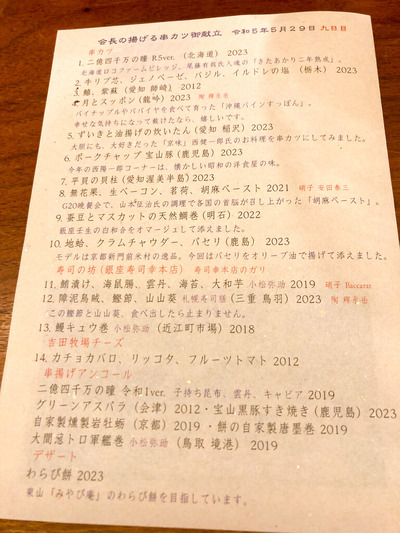 会長の揚げる串カツ御献立　令和5年5月29日 九日目
串カツ
1. 二億四千万の瞳 R5ver. （北海道） 2023
北海道ロコファームビレッジ、尾藤有銘氏入魂の「きたあかり二年熟成」。
2. 牛リブ芯、ジェノベーゼ、バジル、イルドレの塩 （栃木） 2023
3. 鱚、紫蘇 （愛知 師崎） 2012
4. 月とスッポン(龍吟) 2023
パイナップルやパパイヤを食べて育った「沖縄パインすっぽん」。
幸せな気持ちになって戴けたなら、嬉しいです。
5. ずいきと油揚げの炊いたん(愛知 稲沢) 2023
大胆にも、大好きだった「京味」西健一郎氏のお料理を串カツにしてみました。
6. ポークチャップ 宝山豚(鹿児島) 2023
今年の西陽一郎コーナーは、懐かしい昭和の洋食屋の味。
7. 平貝の貝柱(愛知渥美半島) 2023
8. 無花果、生ベーコン、茗荷、胡麻ペースト 2021 硝子 安田泰三
G20晩餐会で、山本征治氏の調理で各国の首脳が召し上がった「胡麻ペースト」。
9. 蚕豆とマスカットの天然鯛巻(明石) 2022
銀座壬生の白和合をオマージュして添えました。
10. 地蛤、クラムチャウダー、パセリ(鹿島) 2023
モデルは京都新門前米村の逸品。今回はパセリをオリーブ油で揚げて添えました。
寿司の坊 (銀座寿司幸本店) 寿司幸本店のガリ
11. 鮪漬け、海鼠腸、雲丹、海苔、大和芋 小松弥助 2019 硝子 Baccarat
12. 障泥烏賊、鰹節、山山葵 札幌寿司膳 (三重 鳥羽) 2023
この鰹節と山山葵、食べ出したら止まりません。
13. 鰻キュウ巻 小松弥助 (近江町市場) 2018
吉田牧場チーズ
14. カチョカバロ、リッコタ、フルーツトマト 2012
串揚げアンコール
二億四千万の瞳 令和1ver. 子持ち昆布、雲丹、キャビア 2019
グリーンアスパラ (会津) 2012・宝山黒豚すき焼き(鹿児島) 2023
自家製燻製岩牡蛎 (京都) 2019 ・餅の自家製唐墨巻 2019
大間葱トロ軍艦巻 小松弥助 (鳥取 境港) 2019
デザート
わらび餅 2023
東山「みやび庵」のわらび餅を目指しています。